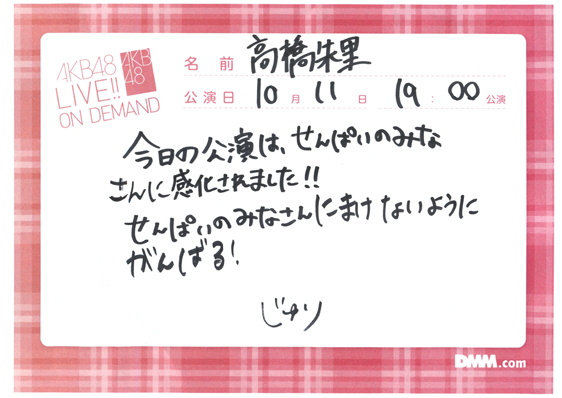 AKB48
LIVE!!
ON DEMAND
AKB
48
名前 高橋朱里
公演日 10月11日 19:00公演
今日の公演は、せんぱいのみな
さんに感化されました!!
せんぱいのみなさんにまけないように
がんばる!
じゅり
DMM.com